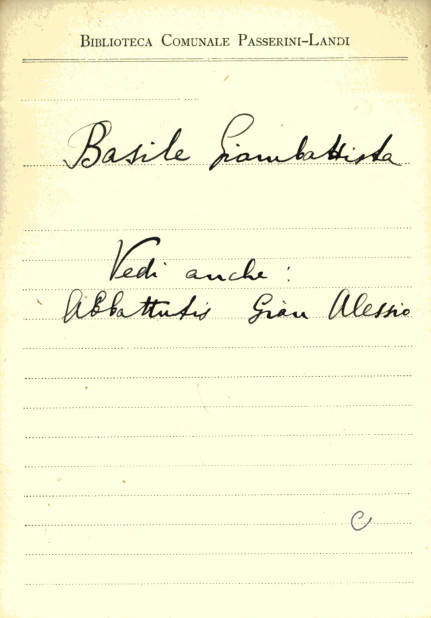 Biblioteca Comunale Passerini-Landi
Basile Giambattista
Vedi anche:
Abbattutis Gian Alessio
C